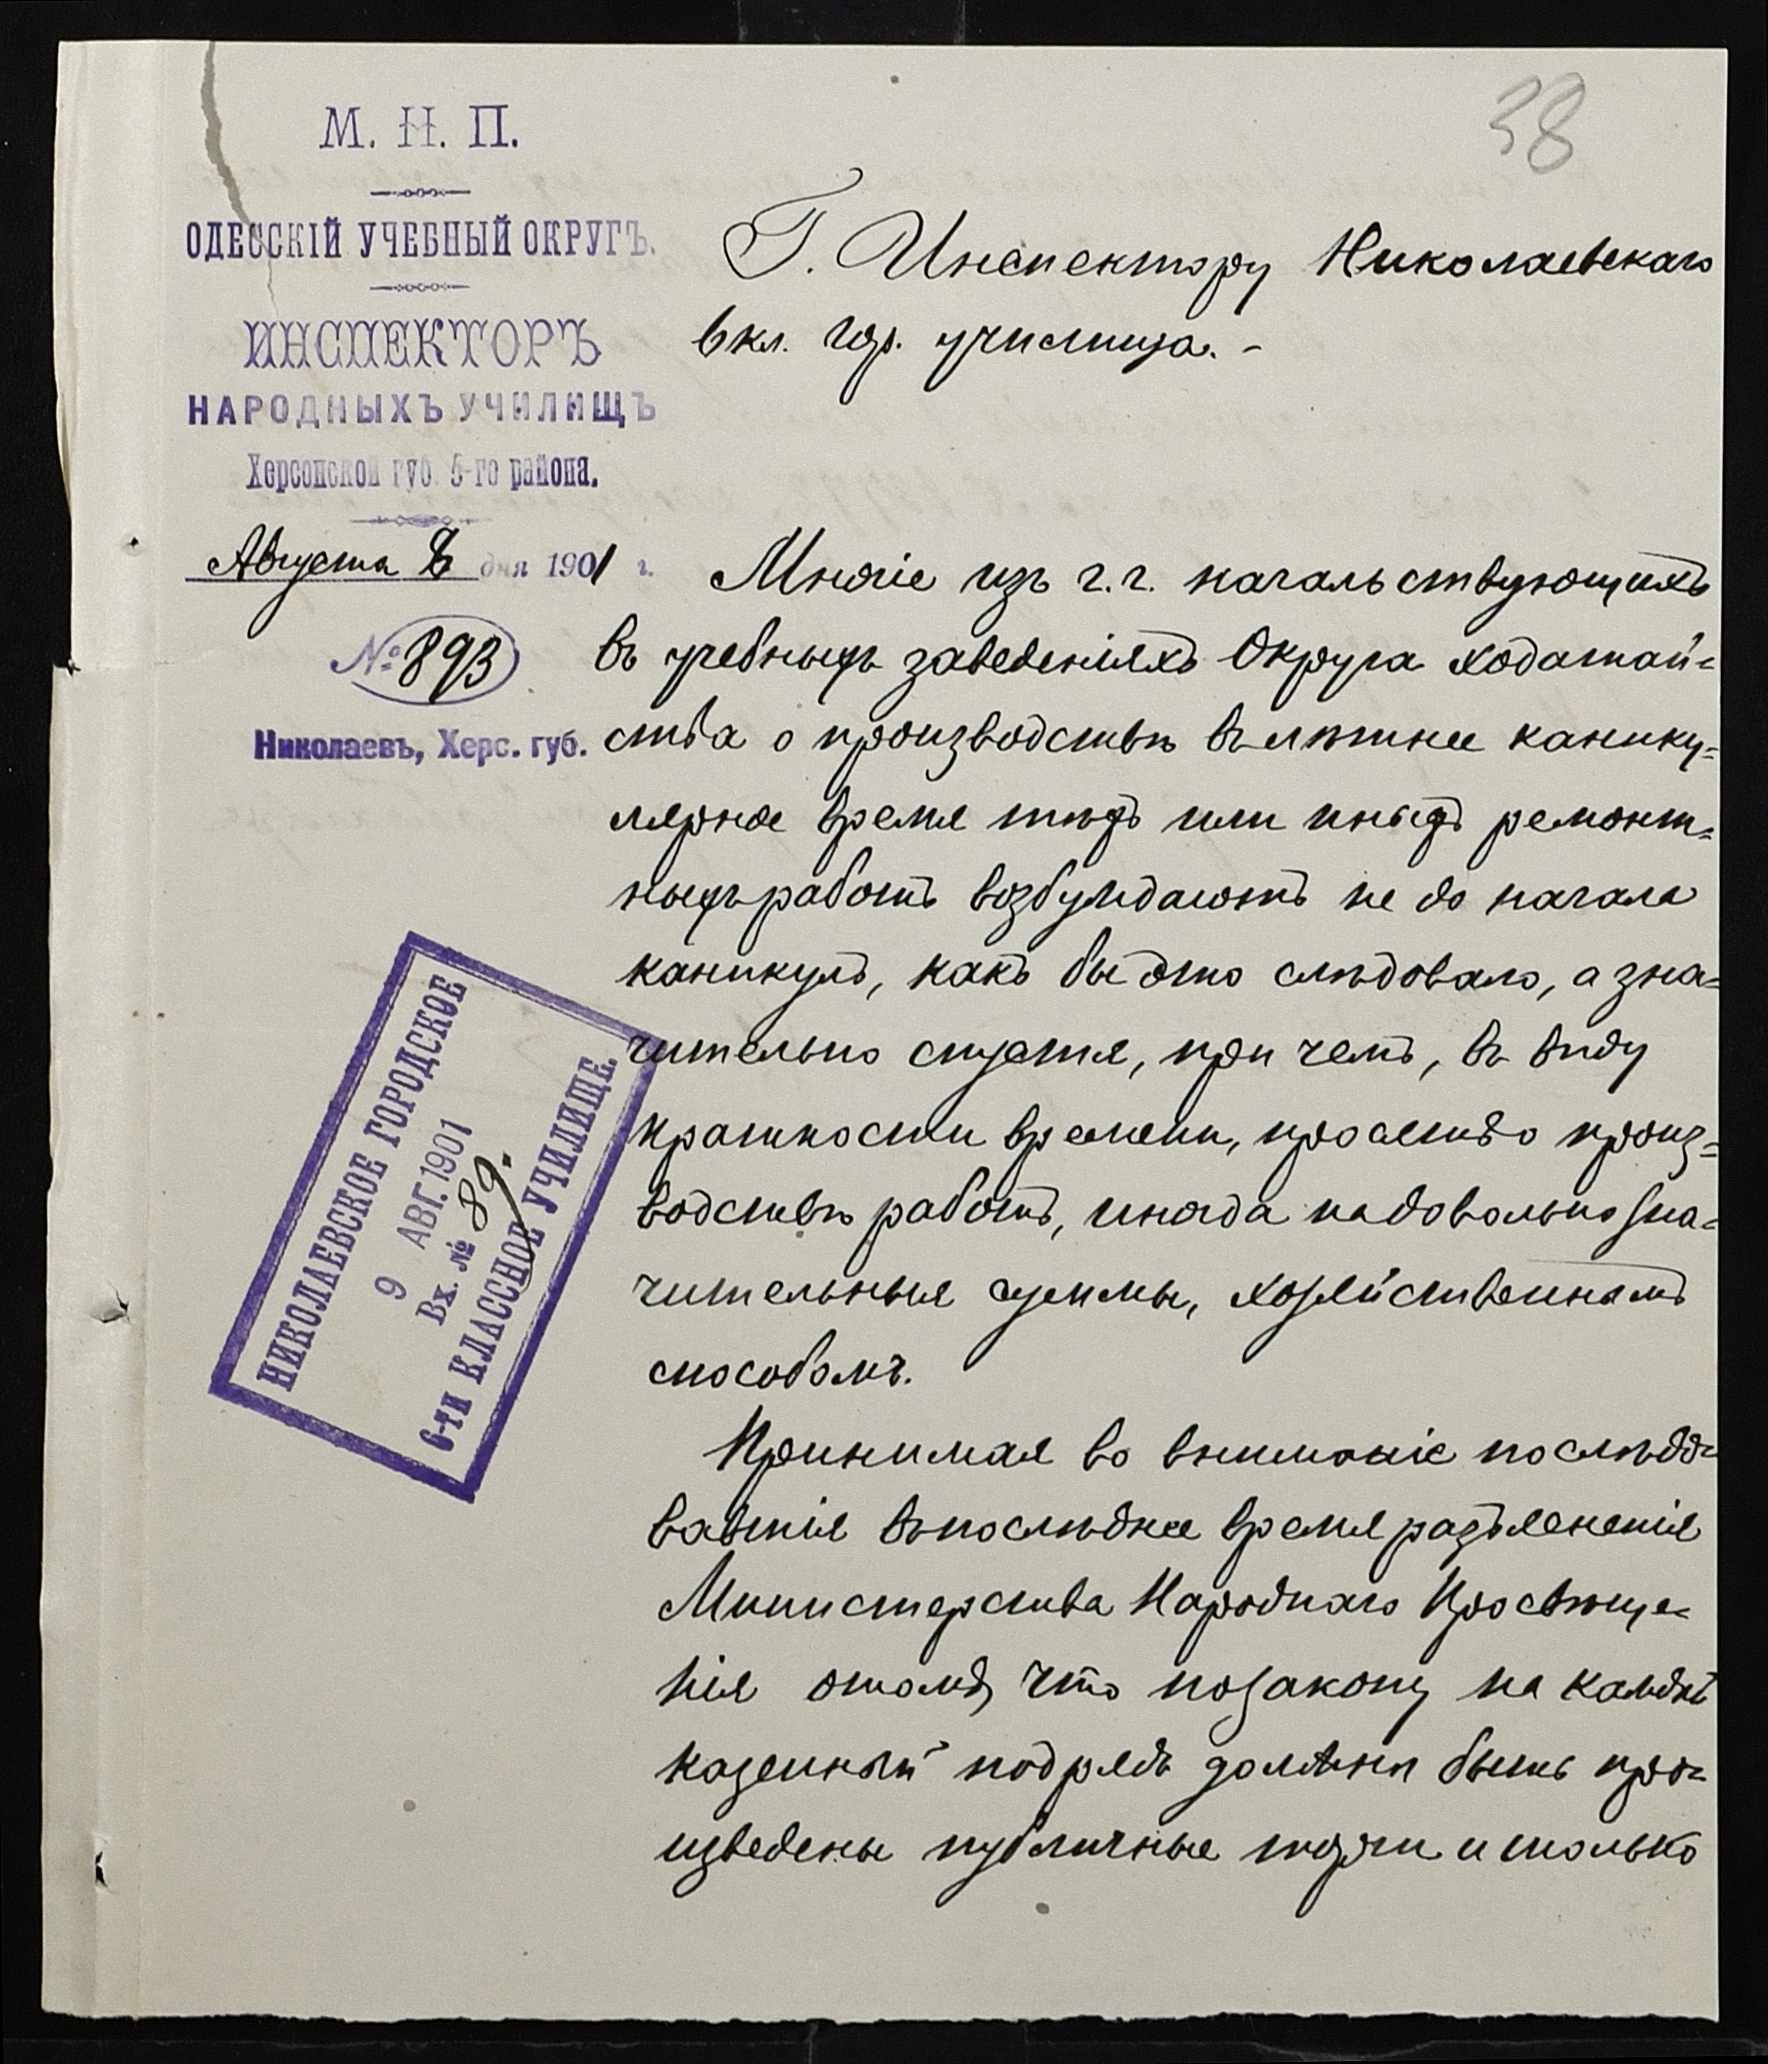 38
М. Н. П.
ОДЕССКІЙ УЧЕБНЫЙ ОКРУГЪ.
ИНСПЕКТОРЪ
НАРОДНЫХЪ УЧИЛИЩЪ
Херсонской губ. 5-го района.
Августа 8 дня 1901 г.
№ 893
Николаевъ, Херс. губ.
Г. Инспектору Николаевскаго
6 кл. гор. училища. -
Многіе изъ г.г. начальствующихъ
въ учебныхъ заведеніяхъ Округа ходатай=
ства о производствѣ въ лѣтнее канику=
лярное время тѣхъ или иныхъ ремонт=
ныхъ работъ возбуждаютъ не до начала
каникулъ, какъ бы это слѣдовало, а зна=
чительно спустя, при чемъ, въ виду
краткости времени, просятъ о произ=
водствѣ работъ, иногда на довольно зна=
чительныя суммы, хозяйственнымъ
способомъ.
Принимая во вниманіе послѣдо=
вавшія въ послѣднее время разъясненія
Министерства Народнаго Просвѣще=
нія о томъ, что по закону на каждый
казенный подрядъ должны быть про=
изведены публичные торги и только
НИКОЛАЕВСКОЕ ГОРОДСКОЕ
9 АВГ. 1901
Вх. № 89.
6-ТИ КЛАССНОЕ УЧИЛИЩЕ.